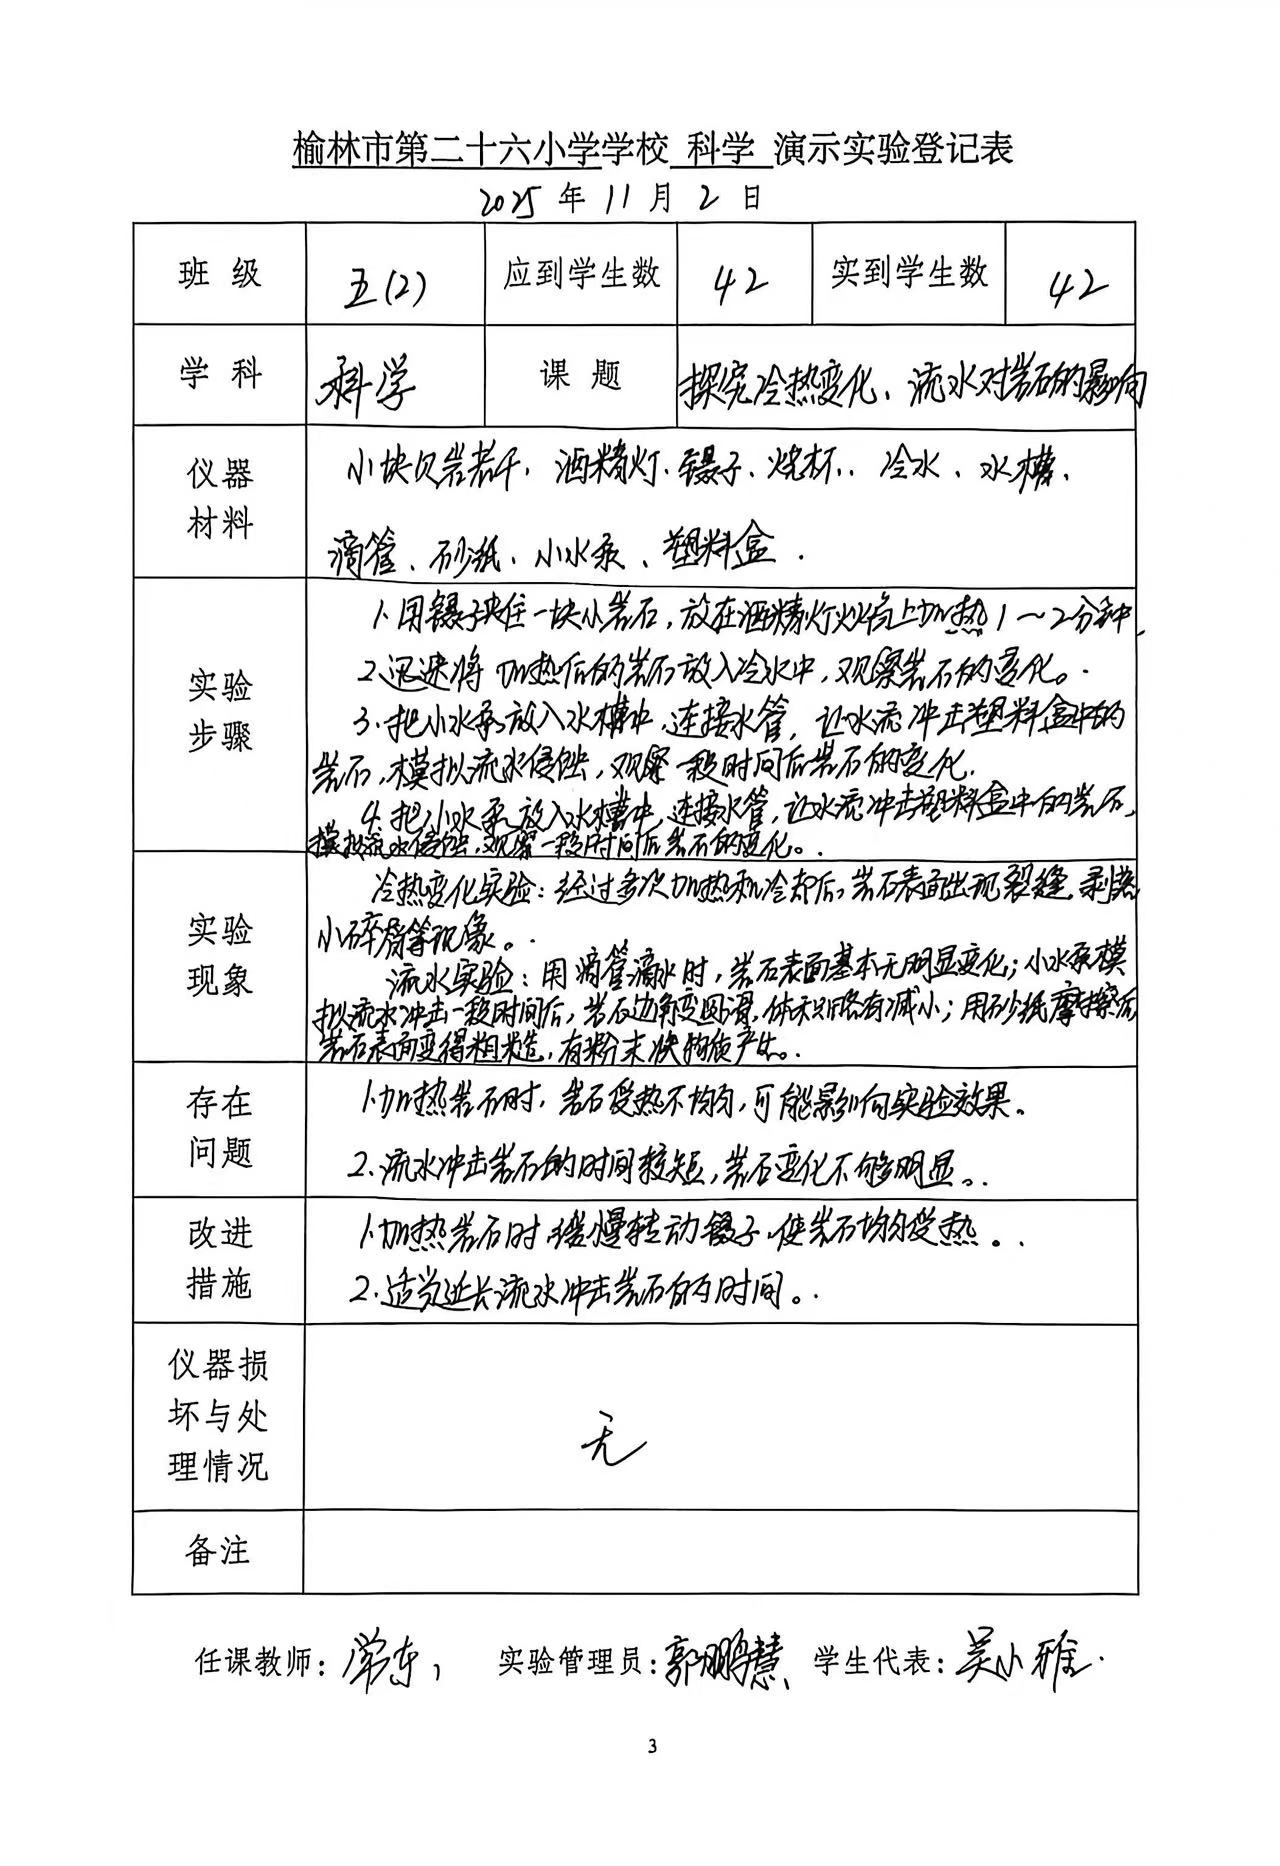 榆林市第二十六小学学校 科学 演示实验登记表
2025 年 11 月 2 日
班 级 五(2) 应到学生数 42 实到学生数 42
学 科 科学 课 题 探究冷热变化、流水对岩石的影响
仪器材料
小块贝岩若干、酒精灯、镊子、烧杯、冷水、水槽、
滴管、砂纸、小水泵、塑料盒.
实验步骤
1.用镊子夹住一块小岩石,放在酒精灯火焰上加热1～2分钟.
2.迅速将加热后的岩石放入冷水中,观察岩石的变化。
3.把小水泵放入水槽中,连接水管,让水流冲击塑料盒中的
岩石,模拟流水侵蚀,观察一段时间后岩石的变化.
4.把小水泵放入水槽中,连接水管,让水流冲击塑料盒中的岩石,
模拟流水侵蚀,观察一段时间后岩石的变化。
实验现象
冷热变化实验:经过多次加热和冷却后,岩石表面出现裂缝、剥落
小碎屑等现象。
流水实验:用滴管滴水时,岩石表面基本无明显变化;小水泵模
拟流水冲击一段时间后,岩石边角变圆滑,体积略有减小;用砂纸摩擦后
岩石表面变得粗糙,有粉末状物质产生。
存在问题
1.加热岩石时,岩石受热不均匀,可能影响实验效果。
2.流水冲击岩石的时间较短,岩石变化不够明显。
改进措施
1.加热岩石时缓慢转动镊子,使岩石均匀受热。
2.适当延长流水冲击岩石的时间。
仪器损坏与处理情况
无
备注
任课教师: 实验管理员:郭鹏慧 学生代表:吴小雅
3